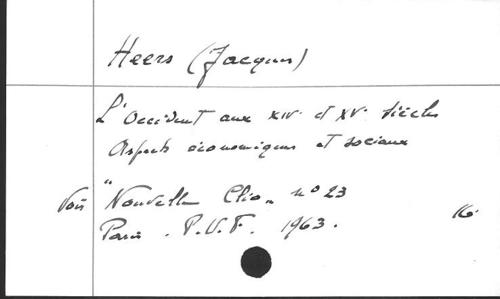 Heers (Jacques)
L'Occident aux XIVe et XVe siècles
Aspects économiques et sociaux
Voir "Nouvelle Clio" n° 23
Paris. P.U.F. 1963. 16°